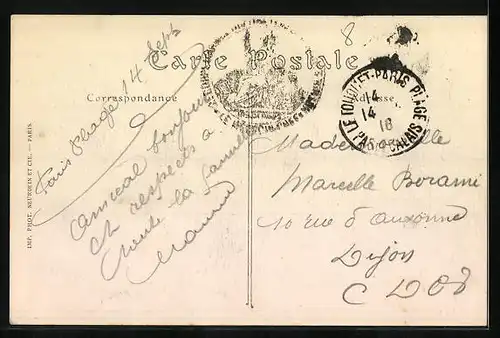 8
Carte Postale
Correspondance
Adresse
Paris Plage 14 Sept
Amical bonjour
et respects à
toute la famille
LE TOUQUET-PARIS PLAGE
14
14
18
PAS-DE-CALAIS
Mademoiselle
Marcelle Borami
10 rue d'Auxonne
Dijon
C D'Or
IMP. PHOT. NEURDEIN ET CIE. — PARIS